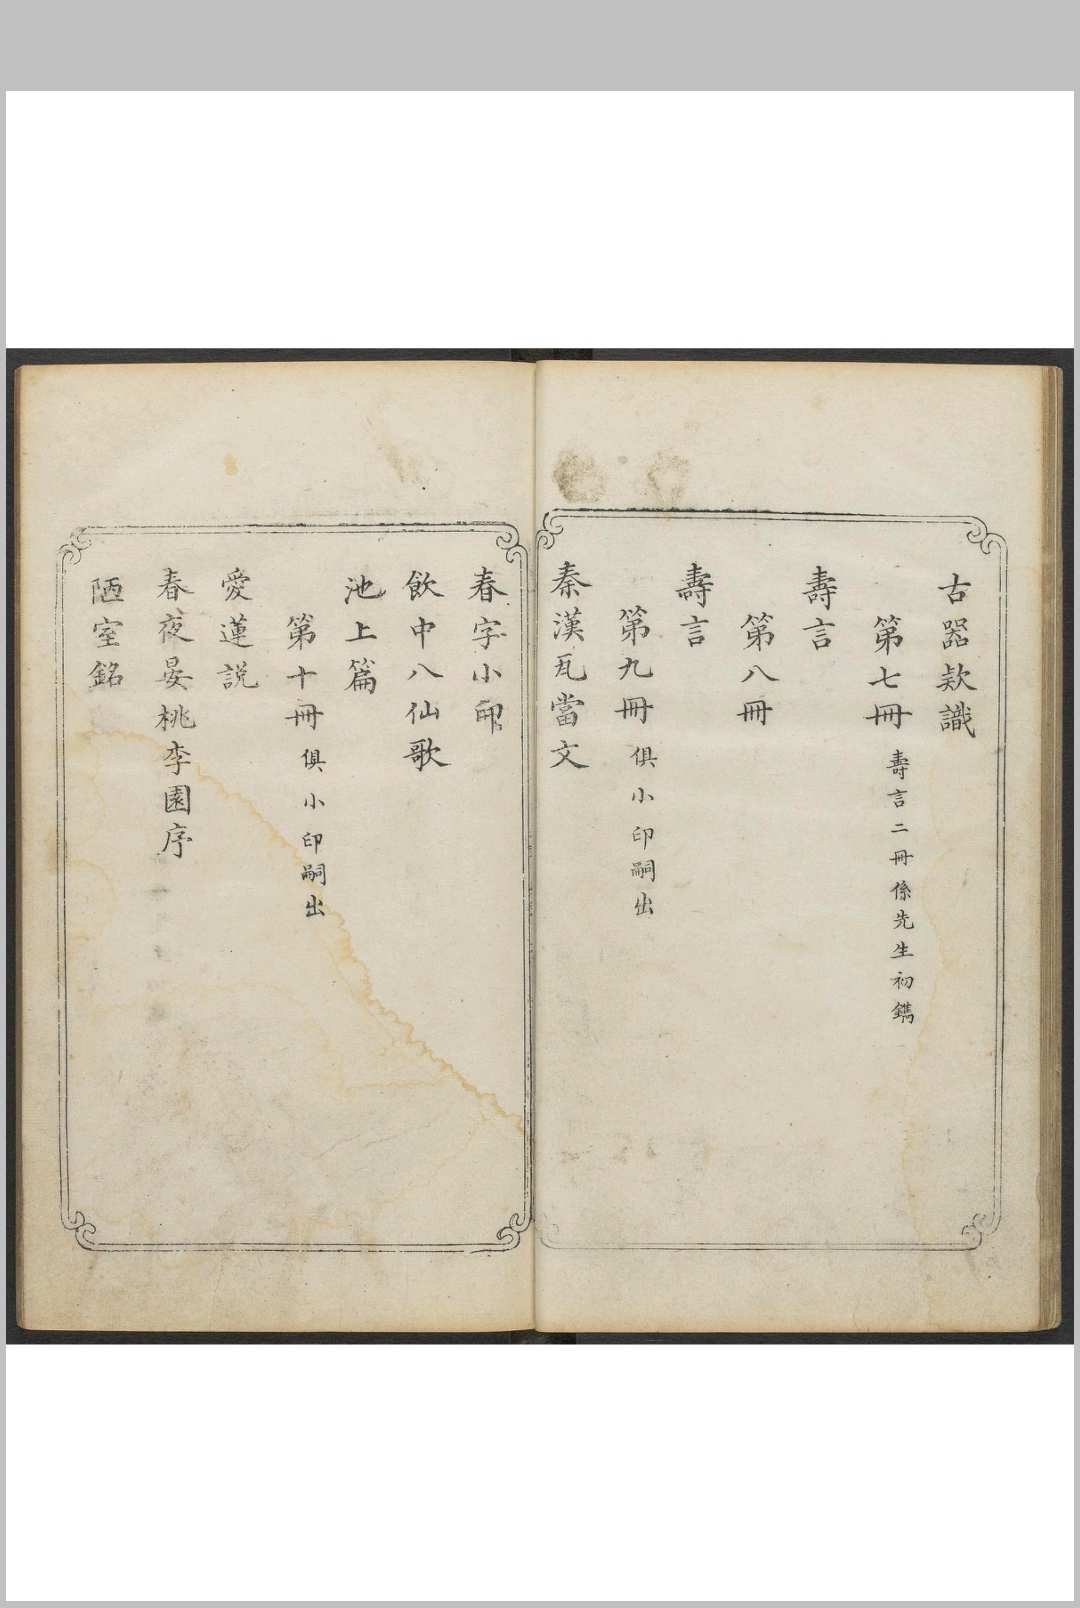 古器欵識
第七冊 壽言二冊係先生初鐫
壽言
第八冊
壽言
第九冊 俱小印嗣出
秦漢瓦當文
春字小印
飲中八仙歌
池上篇
第十冊 俱小印嗣出
愛蓮說
春夜宴桃李園序
陋室銘